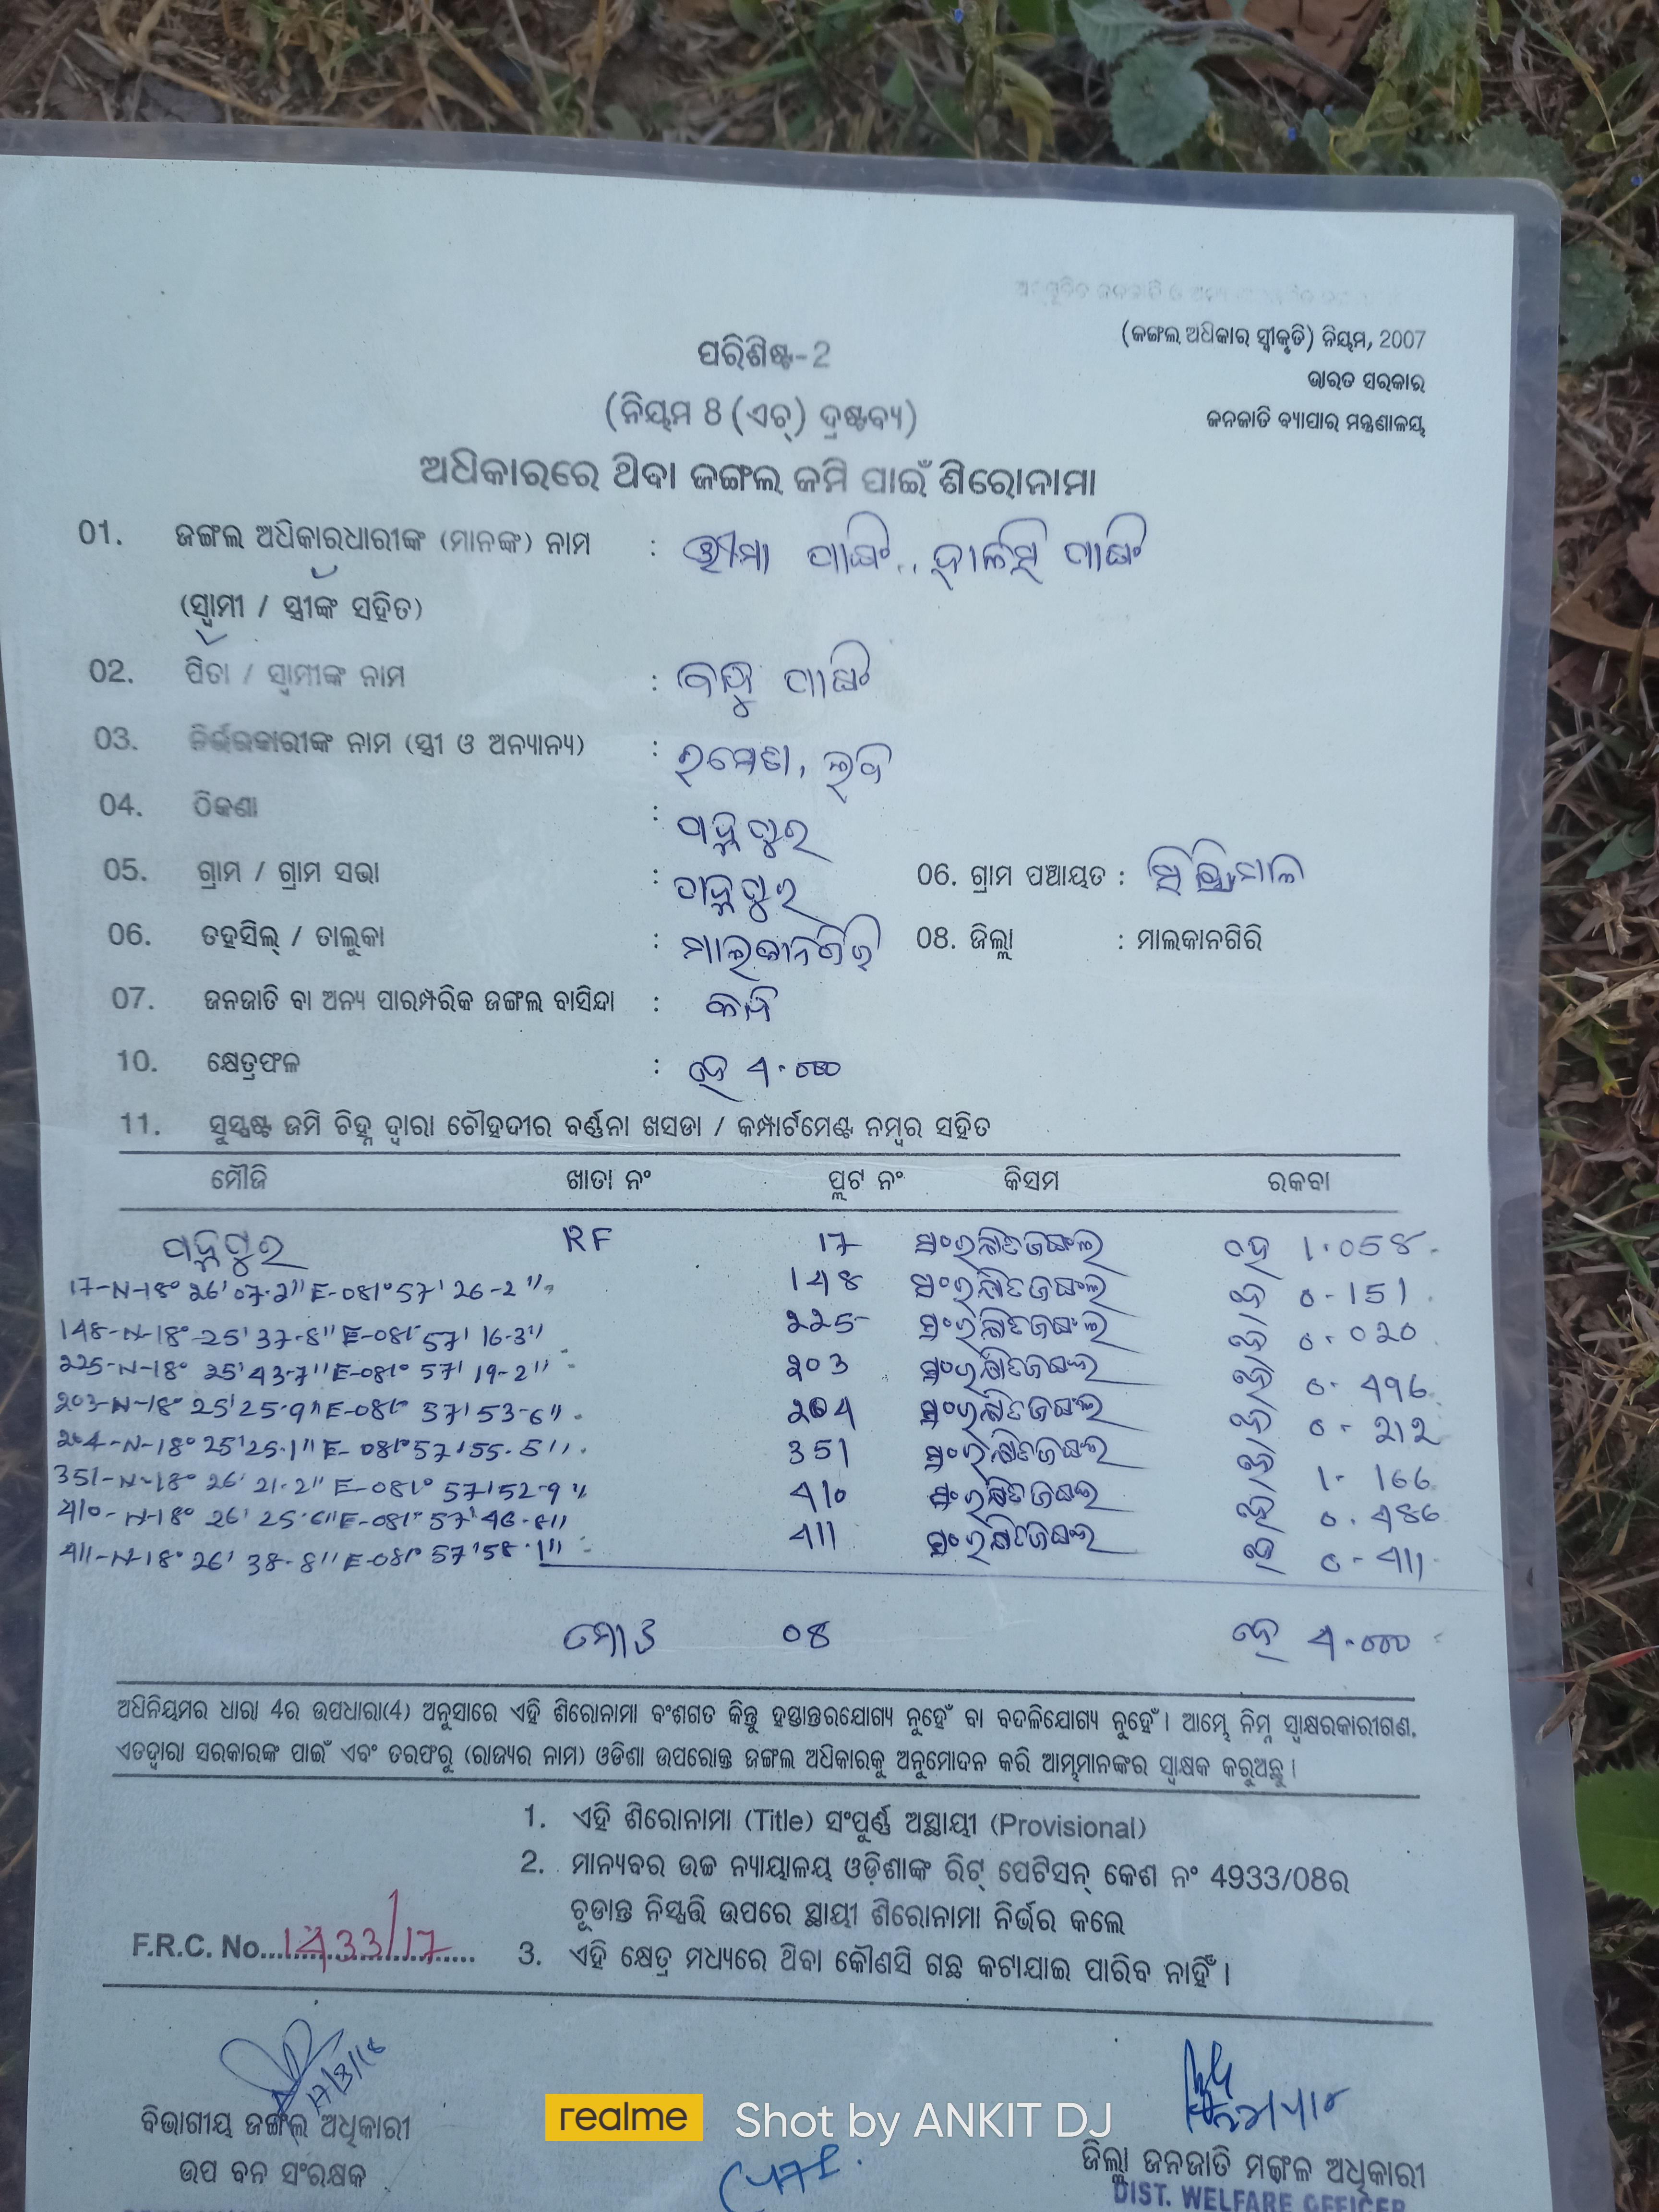 (ଜଙ୍ଗଲ ଅଧିକାର ସ୍ୱୀକୃତି) ନିୟମ, 2007
ପରିଶିଷ୍ଟ-2
ଭାରତ ସରକାର
(ନିୟମ 8 (ଏଚ୍) ଦ୍ରଷ୍ଟବ୍ୟ)
ଜନଜାତି ବ୍ୟାପାର ମନ୍ତ୍ରଣାଳୟ
ଅଧିକାରରେ ଥିବା ଜଙ୍ଗଲ ଜମି ପାଇଁ ଶିରୋନାମା
01. ଜଙ୍ଗଲ ଅଧିକାରଧାରୀଙ୍କ (ମାନଙ୍କ) ନାମ :
(ସ୍ୱାମୀ / ସ୍ତ୍ରୀଙ୍କ ସହିତ)
02. ପିତା / ସ୍ୱାମୀଙ୍କ ନାମ :
03. ନିର୍ଭରକାରୀଙ୍କ ନାମ (ସ୍ତ୍ରୀ ଓ ଅନ୍ୟାନ୍ୟ) :
04. ଠିକଣା :
05. ଗ୍ରାମ / ଗ୍ରାମ ସଭା : 06. ଗ୍ରାମ ପଞ୍ଚାୟତ :
06. ତହସିଲ୍ / ତାଲୁକା : ମାଲକାନଗିରି 08. ଜିଲ୍ଲା : ମାଲକାନଗିରି
07. ଜନଜାତି ବା ଅନ୍ୟ ପାରମ୍ପରିକ ଜଙ୍ଗଲ ବାସିନ୍ଦା :
10. କ୍ଷେତ୍ରଫଳ : ହେ 4.000
11. ସୁସ୍ପଷ୍ଟ ଜମି ଚିହ୍ନ ଦ୍ୱାରା ଚୌହଦୀର ବର୍ଣ୍ଣନା ଖସଡା / କମ୍ପାର୍ଟମେଣ୍ଟ ନମ୍ବର ସହିତ
ମୌଜି ଖାତା ନଂ ପ୍ଲଟ ନଂ କିସମ ରକବା
RF 17 ସଂରକ୍ଷିତଜଙ୍ଗଲ ହେ 1.058
17-N-18° 26' 07.2" E-081° 57' 26-2" 148 ସଂରକ୍ଷିତଜଙ୍ଗଲ ହେ 0-151
148-N-18° 25' 37-8" E-081° 57' 16-3" 225 ସଂରକ୍ଷିତଜଙ୍ଗଲ ହେ 0.020
225-N-18° 25' 43-7" E-081° 57' 19-2" 203 ସଂରକ୍ଷିତଜଙ୍ଗଲ ହେ 0.496
203-N-18° 25' 25-9" E-081° 57' 53-6" 204 ସଂରକ୍ଷିତଜଙ୍ଗଲ ହେ 0-212
204-N-18° 25' 25.1" E-081° 57' 55.5" 351 ସଂରକ୍ଷିତଜଙ୍ଗଲ ହେ 1-166
351-N-18° 26' 21.2" E-081° 57' 52-9" 410 ସଂରକ୍ଷିତଜଙ୍ଗଲ ହେ 0.486
410-N-18° 26' 25.6" E-081° 57' 411 ସଂରକ୍ଷିତଜଙ୍ଗଲ ହେ 0-411
411-N-18° 26' 38-8" E-081° 57' 58.1"
ମୋଟ 08 ହେ 4.000
ଅଧିନିୟମର ଧାରା 4ର ଉପଧାରା(4) ଅନୁସାରେ ଏହି ଶିରୋନାମା ବଂଶଗତ କିନ୍ତୁ ହସ୍ତାନ୍ତରଯୋଗ୍ୟ ନୁହେଁ ବା ବଦଳିଯୋଗ୍ୟ ନୁହେଁ। ଆମ୍ଭେ ନିମ୍ନ ସ୍ୱାକ୍ଷରକାରୀଗଣ,
ଏତଦ୍ୱାରା ସରକାରଙ୍କ ପାଇଁ ଏବଂ ତରଫରୁ (ରାଜ୍ୟର ନାମ) ଓଡିଶା ଉପରୋକ୍ତ ଜଙ୍ଗଲ ଅଧିକାରକୁ ଅନୁମୋଦନ କରି ଆମ୍ଭମାନଙ୍କର ସ୍ୱାକ୍ଷକ କରୁଅଛୁ।
1. ଏହି ଶିରୋନାମା (Title) ସଂପୁର୍ଣ୍ଣ ଅସ୍ଥାୟୀ (Provisional)
2. ମାନ୍ୟବର ଉଚ୍ଚ ନ୍ୟାୟାଳୟ ଓଡ଼ିଶାଙ୍କ ରିଟ୍ ପେଟିସନ୍ କେଶ ନଂ 4933/08ର
ଚୂଡାନ୍ତ ନିସ୍ପତ୍ତି ଉପରେ ସ୍ଥାୟୀ ଶିରୋନାମା ନିର୍ଭର କଲେ
F.R.C. No. 1433/17 3. ଏହି କ୍ଷେତ୍ର ମଧ୍ୟରେ ଥିବା କୌଣସି ଗଛ କଟାଯାଇ ପାରିବ ନାହିଁ।
17/3/18
ବିଭାଗୀୟ ଜଙ୍ଗଲ ଅଧିକାରୀ
realme Shot by ANKIT DJ
ଜିଲ୍ଲା ଜନଜାତି ମଙ୍ଗଳ ଅଧିକାରୀ
ଉପ ବନ ସଂରକ୍ଷକ
DIST. WELFARE OFFICER